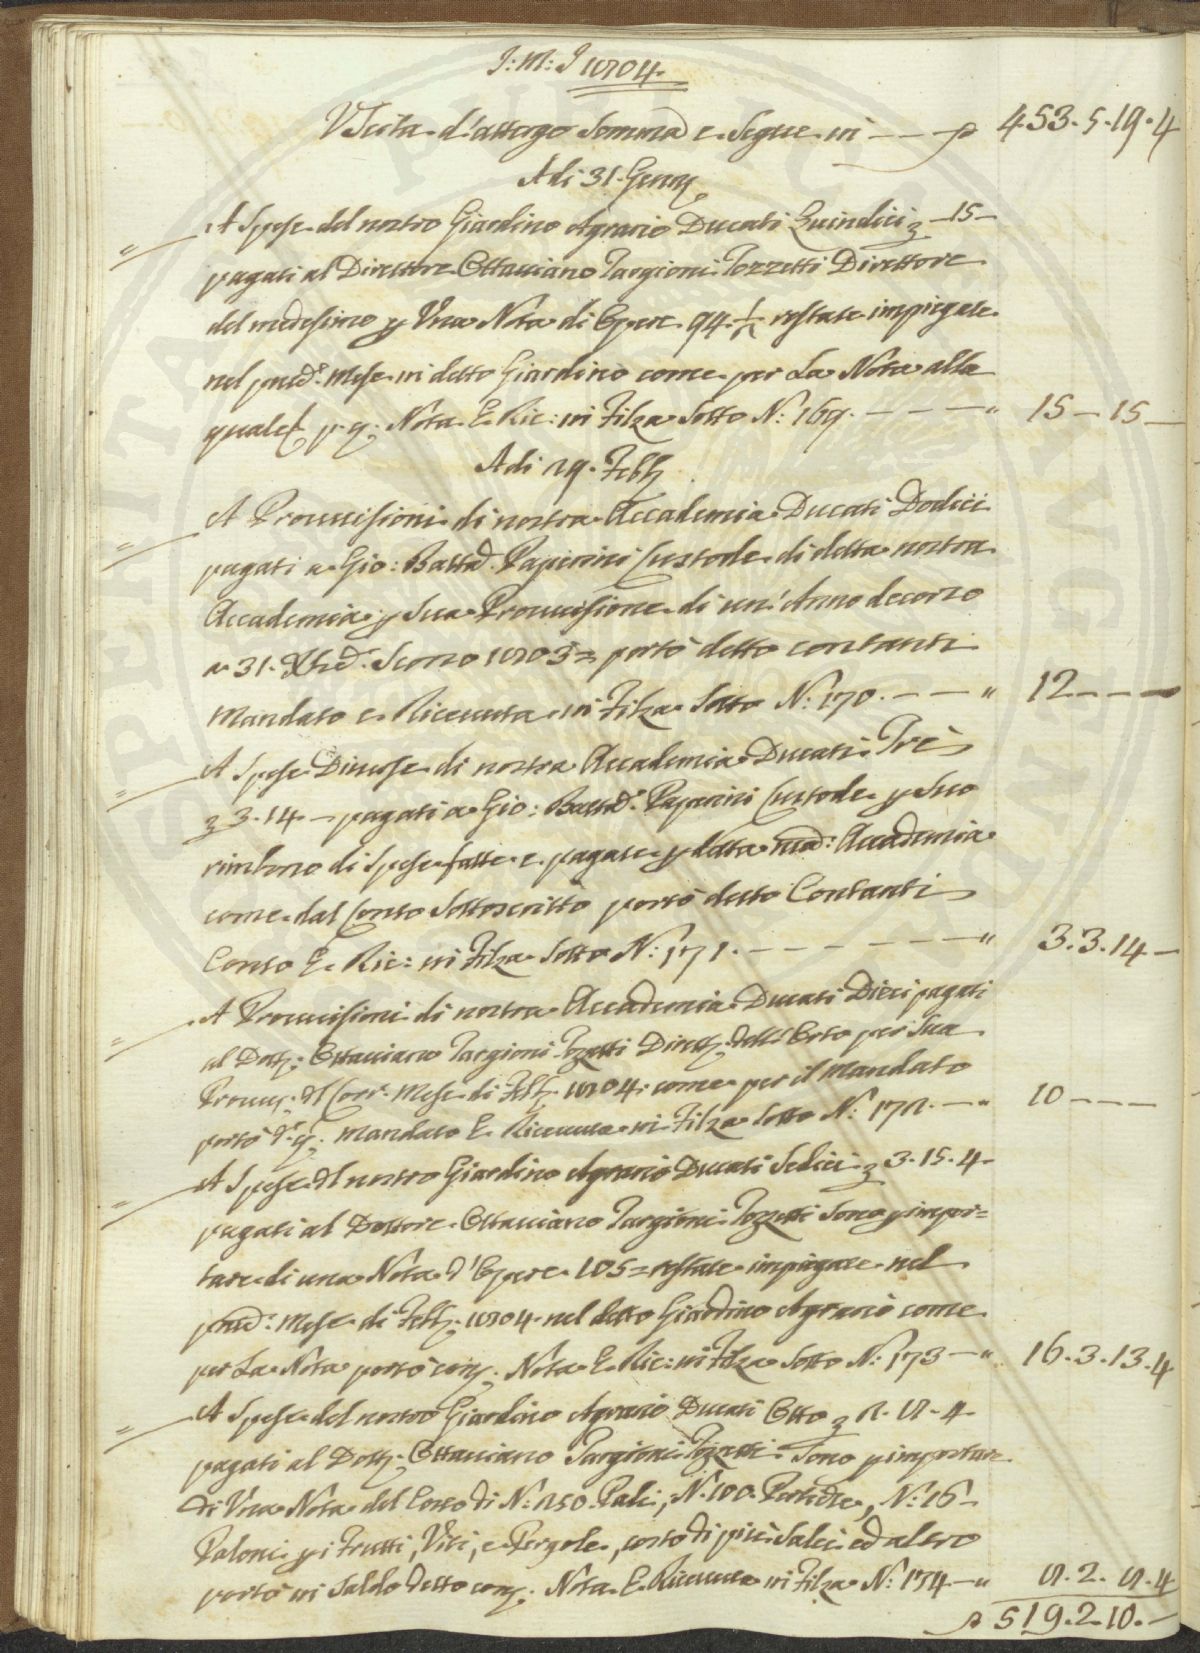 J: M: J 1804.
Uscita d'attergo Somma e Segue in — — 453.5.19.4
Adi 31. Genn
A Spese del nostro Giardino Agrario Ducati Quindici 3 — 15 —
pagati al Direttore Ottaviano Targioni Tozzetti Direttore
del medesimo p Una Nota di Opere 94. ½ restate impiegate
nel pred. Mese in detto Giardino come per La Nota alla
quale p. q. Nota E Ric: in Filza Sotto N: 169. — — — " 15 — 15 —
Adi 29. Febb
A Provvisioni di nostra Accademia Ducati Dodici
pagati a Gio: Batta Paperini Custode di detta nostra
Accademia p Sua Provvisione di un'Anno decorso
a 31. Xbre Scorso 1803 = portò detto contanti
Mandato e Ricevuta in Filza Sotto N: 170. — — " 12 — — —
A Spese Diverse di nostra Accademia Ducati Trè
3 3.14 — pagati a Gio: Batta Paperini Custode p Suo
rimborso di Spese fatte e pagate p detta med: Accademia
come dal Conto Sottoscritto portò detto Contanti
Conto E Ric: in Filza Sotto N: 171. — — — — — — " 3.3.14 —
A Provvisioni di nostra Accademia Ducati Dieci pagati
al Dott: Ottaviano Targioni Tozzetti Dirett: dell'Orto per Sua
Provvis: dl Corr. Mese di Febb: 1804. come per il Mandato
portò d. q: Mandato E Ricevuta in Filza Sotto N: 172. — " 10 — — —
A Spese dl nostro Giardino Agrario Ducati Sedici 3 3.15.4 —
pagati al Dottore Ottaviano Targioni Tozzetti Sono p impor=
tare di una Nota d'Opere 105 = restate impiegate nel
pred: Mese di Febb: 1804. nel detto Giardino Agrario come
per La Nota portò cont: Nota E Ric: in Filza Sotto N: 173 — " 16.3.13.4
A Spese del nostro Giardino Agrario Ducati Otto 3 2. 8. 4
pagati al Dott: Ottaviano Targioni Tozzetti Sono p importare
di Una Nota del Costo di N: 250. Pali, N: 100. Pertiche, N: 16 —
Paloni p i Frutti, Viti, e Pergole, costo di più Salci ed altro
portò in Saldo detto cont: Nota E Ricevuta in Filza N: 174 — " 8. 2. 8. 4
519.2.10. —